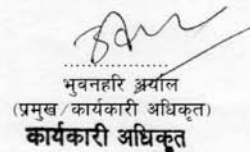 भुवनहरि अर्याल
(प्रमुख/कार्यकारी अधिकृत)
कार्यकारी अधिकृत